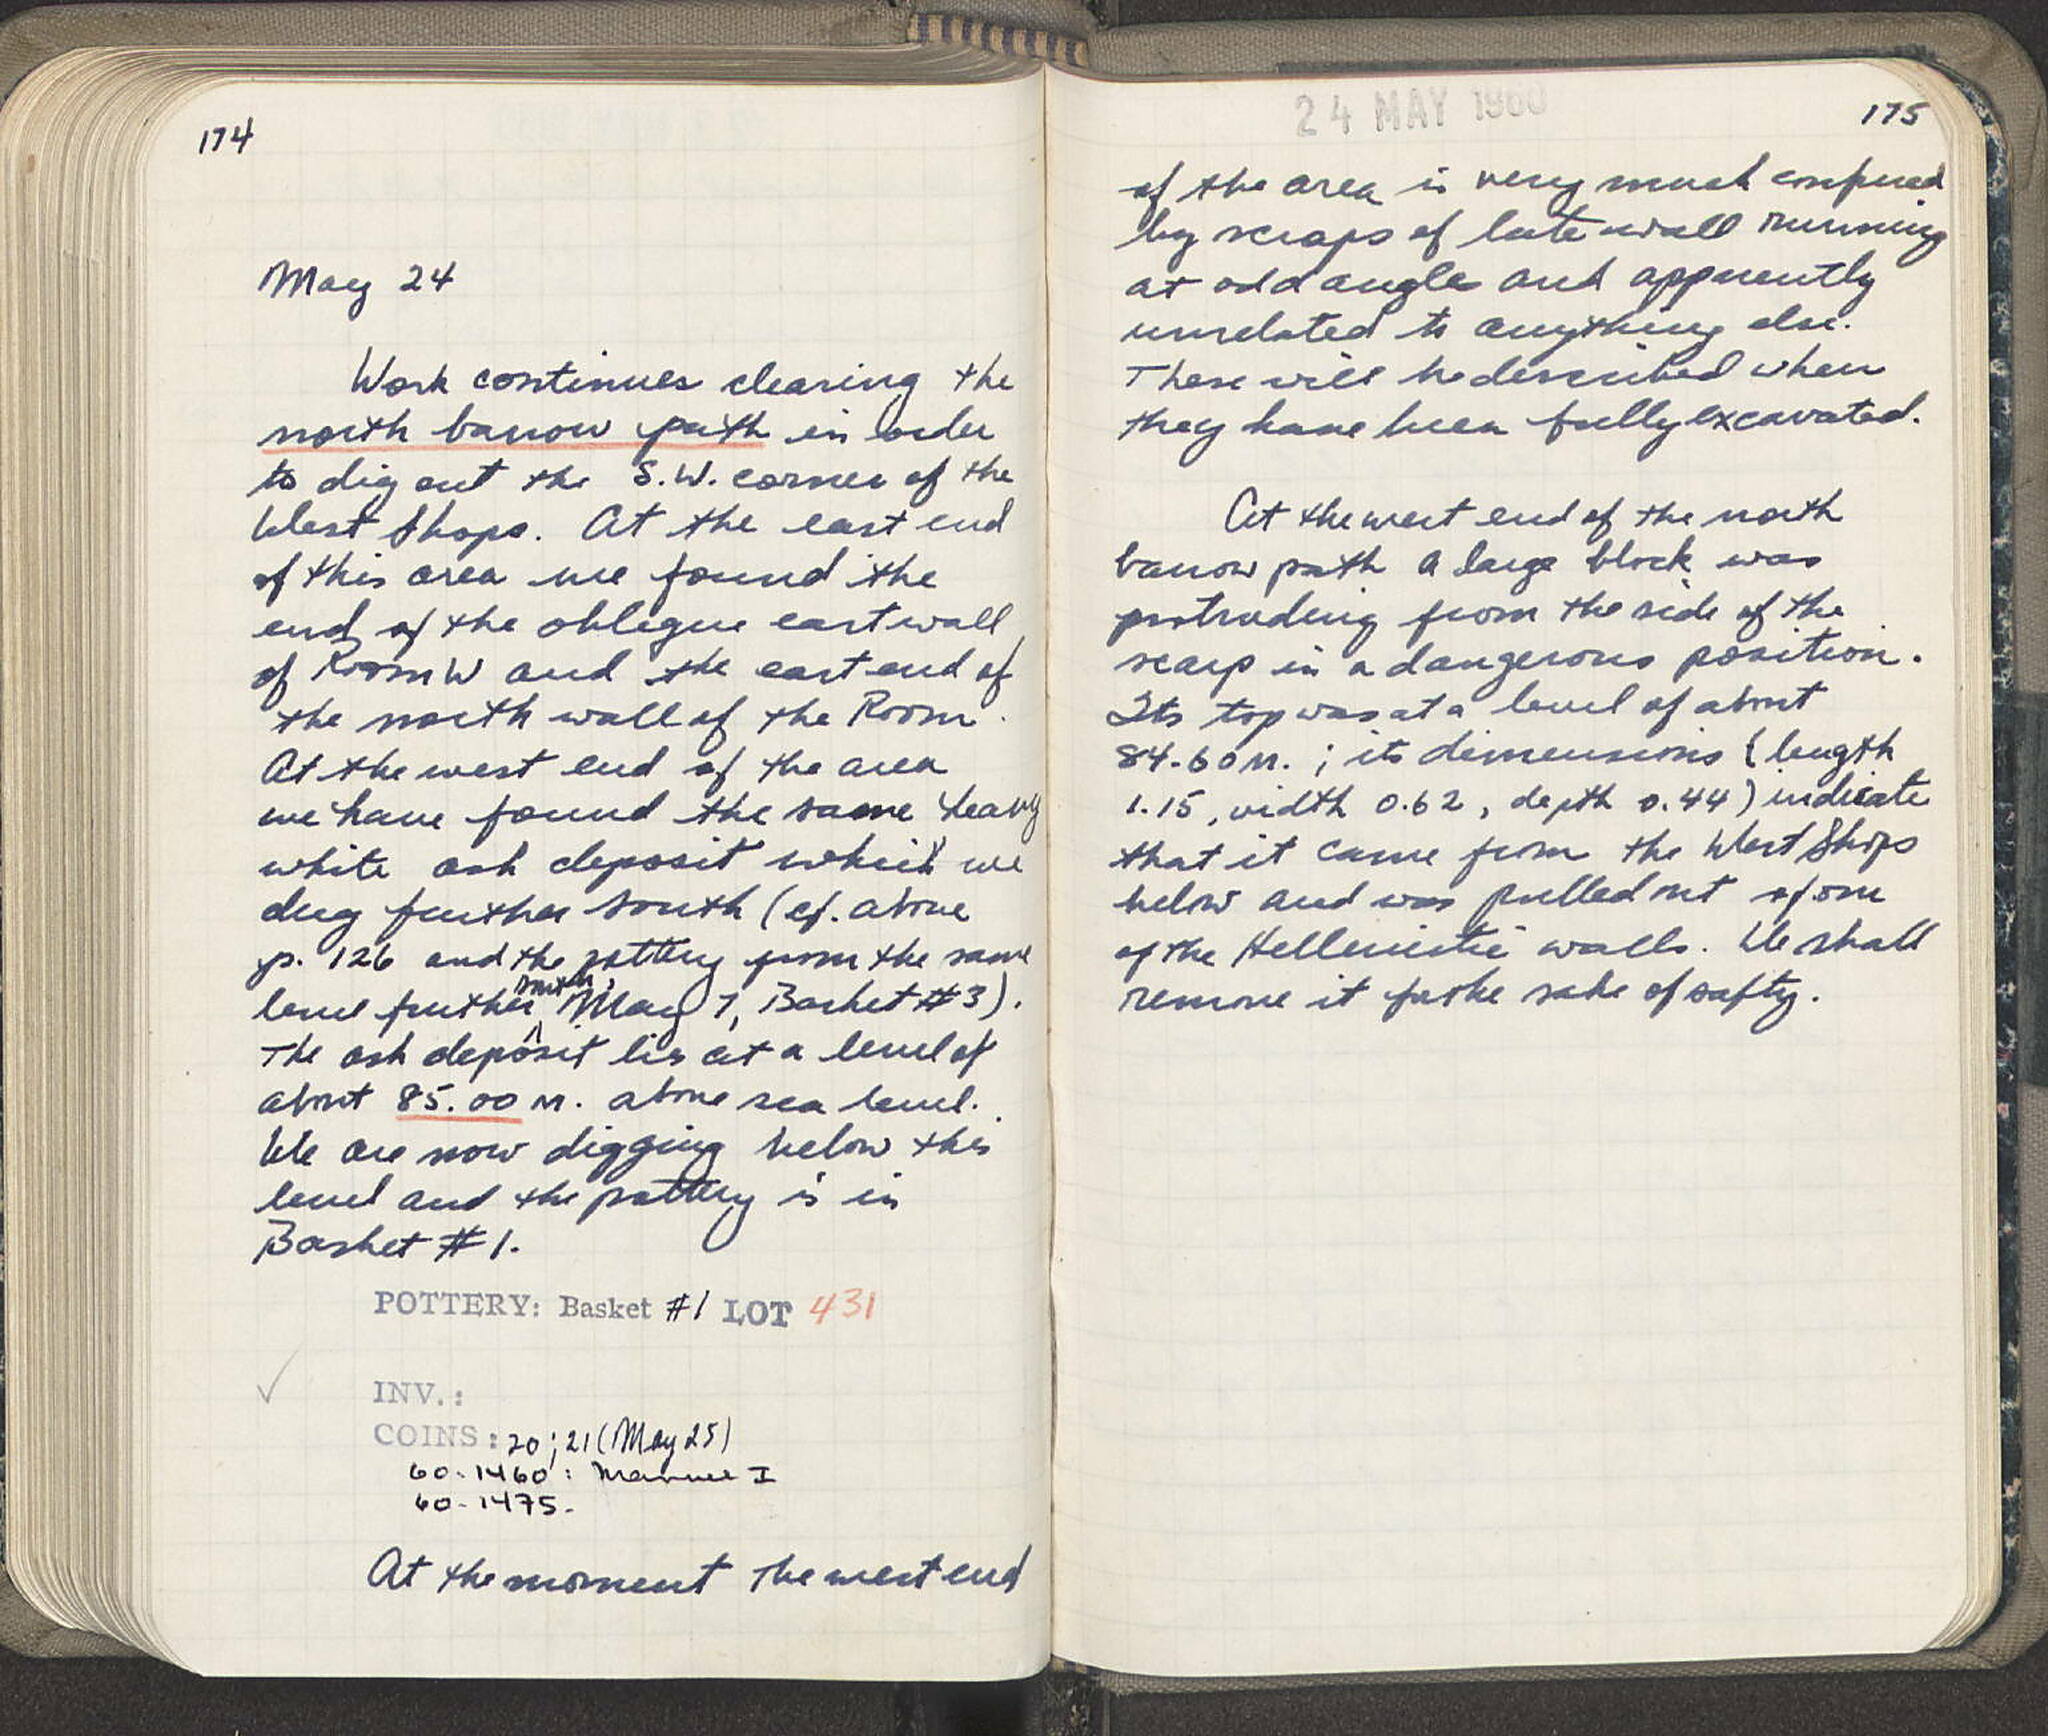 174
May 24
Work continues clearing the
north barrow path in order
to dig out the S.W. corner of the
West Shops. At the east end
of this area we found the
end of the oblique east wall
of Room W and the east end of
the north wall of the Room.
At the west end of the area
we have found the same heavy
white ash deposit which we
dug further south (cf. above
p. 126 and the pottery from the same
level further south, May 7, Basket #3).
The ash deposit lies at a level of
about 85.00 m. above sea level.
We are now digging below this
level and the pottery is in
Basket #1.
POTTERY: Basket #1 LOT 431
✓ INV.:
COINS: 20; 21 (May 25)
60-1460: Manuel I
60-1475.
At the moment the west end
24 MAY 1960
175
of the area is very much confused
by scraps of late wall running
at odd angles and apparently
unrelated to anything else.
These will be described when
they have been fully excavated.
At the west end of the north
barrow path a large block was
protruding from the side of the
scarp in a dangerous position.
Its top was at a level of about
84.60 m.; its dimensions (length
1.15, width 0.62, depth 0.44) indicate
that it came from the West Shops
below and was pulled out of one
of the Hellenistic walls. We shall
remove it for the sake of safty.